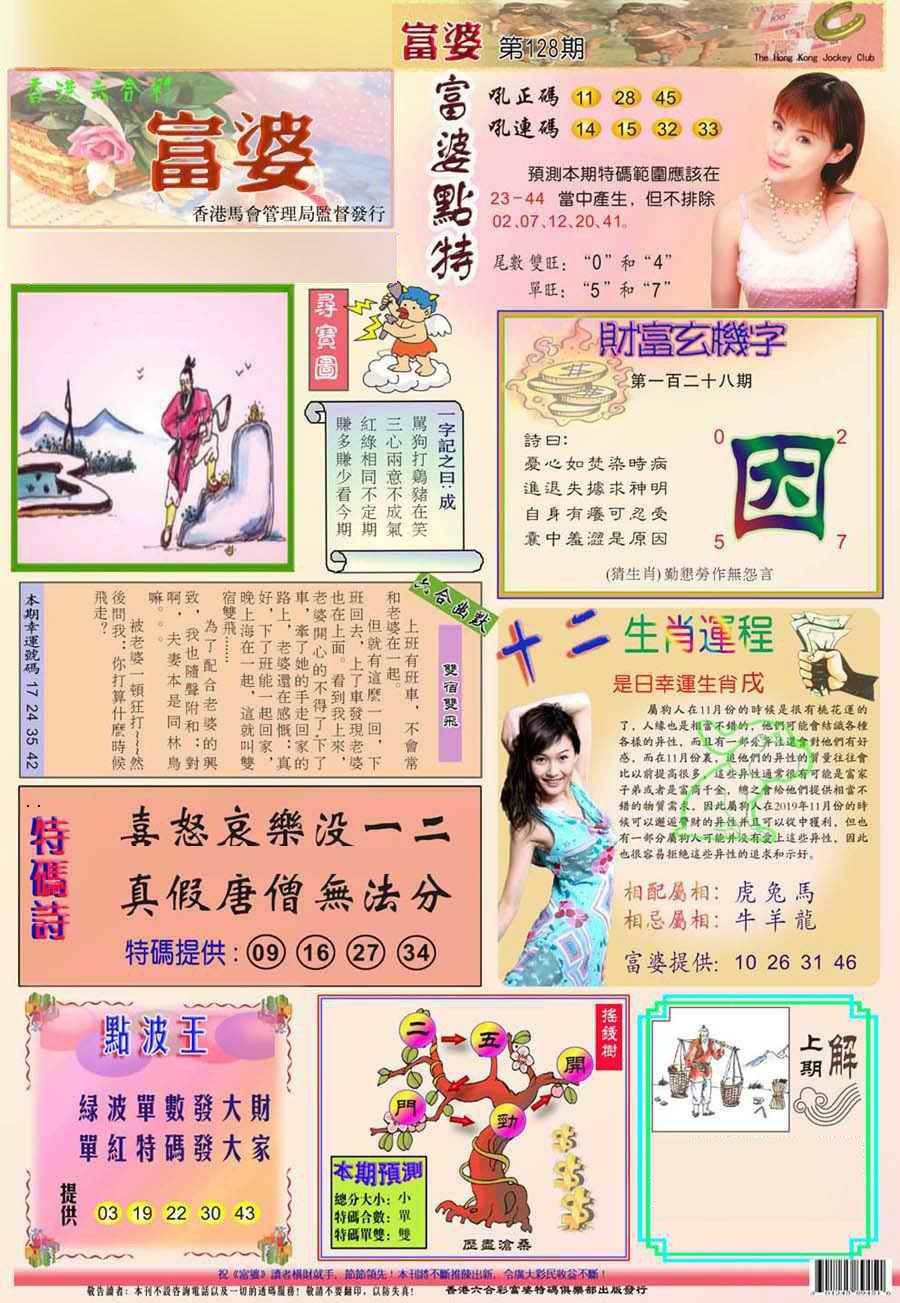 富婆 第128期
The Hong Kong Jockey Club
香港六合彩
富婆
香港馬會管理局監督發行
富婆點特
吼正碼 11 28 45
吼連碼 14 15 32 33
預測本期特碼範圍應該在
23-44 當中產生，但不排除
02、07、12、20、41。
尾數雙旺：“0”和“4”
單旺：“5”和“7”
尋寶圖
一字記之曰：成
罵狗打鷄豬在笑
三心兩意不成氣
紅綠相同不定期
賺多賺少看今期
財富玄機字
第一百二十八期
詩曰：
憂心如焚染時病
進退失據求神明
自身有癢可忍受
囊中羞澀是原因
0 2
因
5 7
(猜生肖)勤懇勞作無怨言
六合幽默
雙宿雙飛
上班有班車，不會常
和老婆在一起。
但就有這麼一回，下
班回去，上了車發現老婆
也在上面。看到我上來，
老婆開心的不得了，下了
車，牽了她的手走回家的
路上，老婆還在感慨：真
好，下了班能一起回家，
晚上海在一起，這就叫雙
宿雙飛……
為了配合老婆的興
致，我也隨聲附和：對
啊，夫妻本是同林鳥
嘛。。。
被老婆一頓狂打~~~~然
後問我：你打算什麼時候
飛走？
本期幸運號碼 17 24 35 42
十二生肖運程
是日幸運生肖戌
屬狗人在11月份的時候是很有桃花運的
了，人緣也是相當不錯的，他們可能會結識各種
各樣的异性，而且有一部分异性還會對他們有好
感，而在11月份裏，追他們的异性的質量往往會
比以前提高很多，這些异性通常很有可能是富家
子弟或者是富商千金，總之會給他們提供相當不
錯的物質需求，因此屬狗人在2019年11月份的時
候可以邂逅多財的异性并且可以從中獲利，但也
有一部分屬狗人可能并没有愛上這些异性，因此
也很容易拒絶這些异性的追求和示好。
相配屬相：虎兔馬
相忌屬相：牛羊龍
富婆提供：10 26 31 46
特碼詩
喜怒哀樂没一二
真假唐僧無法分
特碼提供：09 16 27 34
點波王
緑波單數發大財
單紅特碼發大家
提供 03 19 22 30 43
搖錢樹
二 五 開
門 勁
本期預測
總分大小：小
特碼合數：單
特碼單雙：雙
歷盡滄桑
上期解
祝《富婆》讀者橫財就手，節節領先！本刊將不斷推陳出新，令廣大彩民收益不斷！
敬告讀者：本刊不設咨詢電話以及一切的透碼服務！敬請不要翻印，以防失真！ 香港六合彩富婆特碼俱樂部出版發行